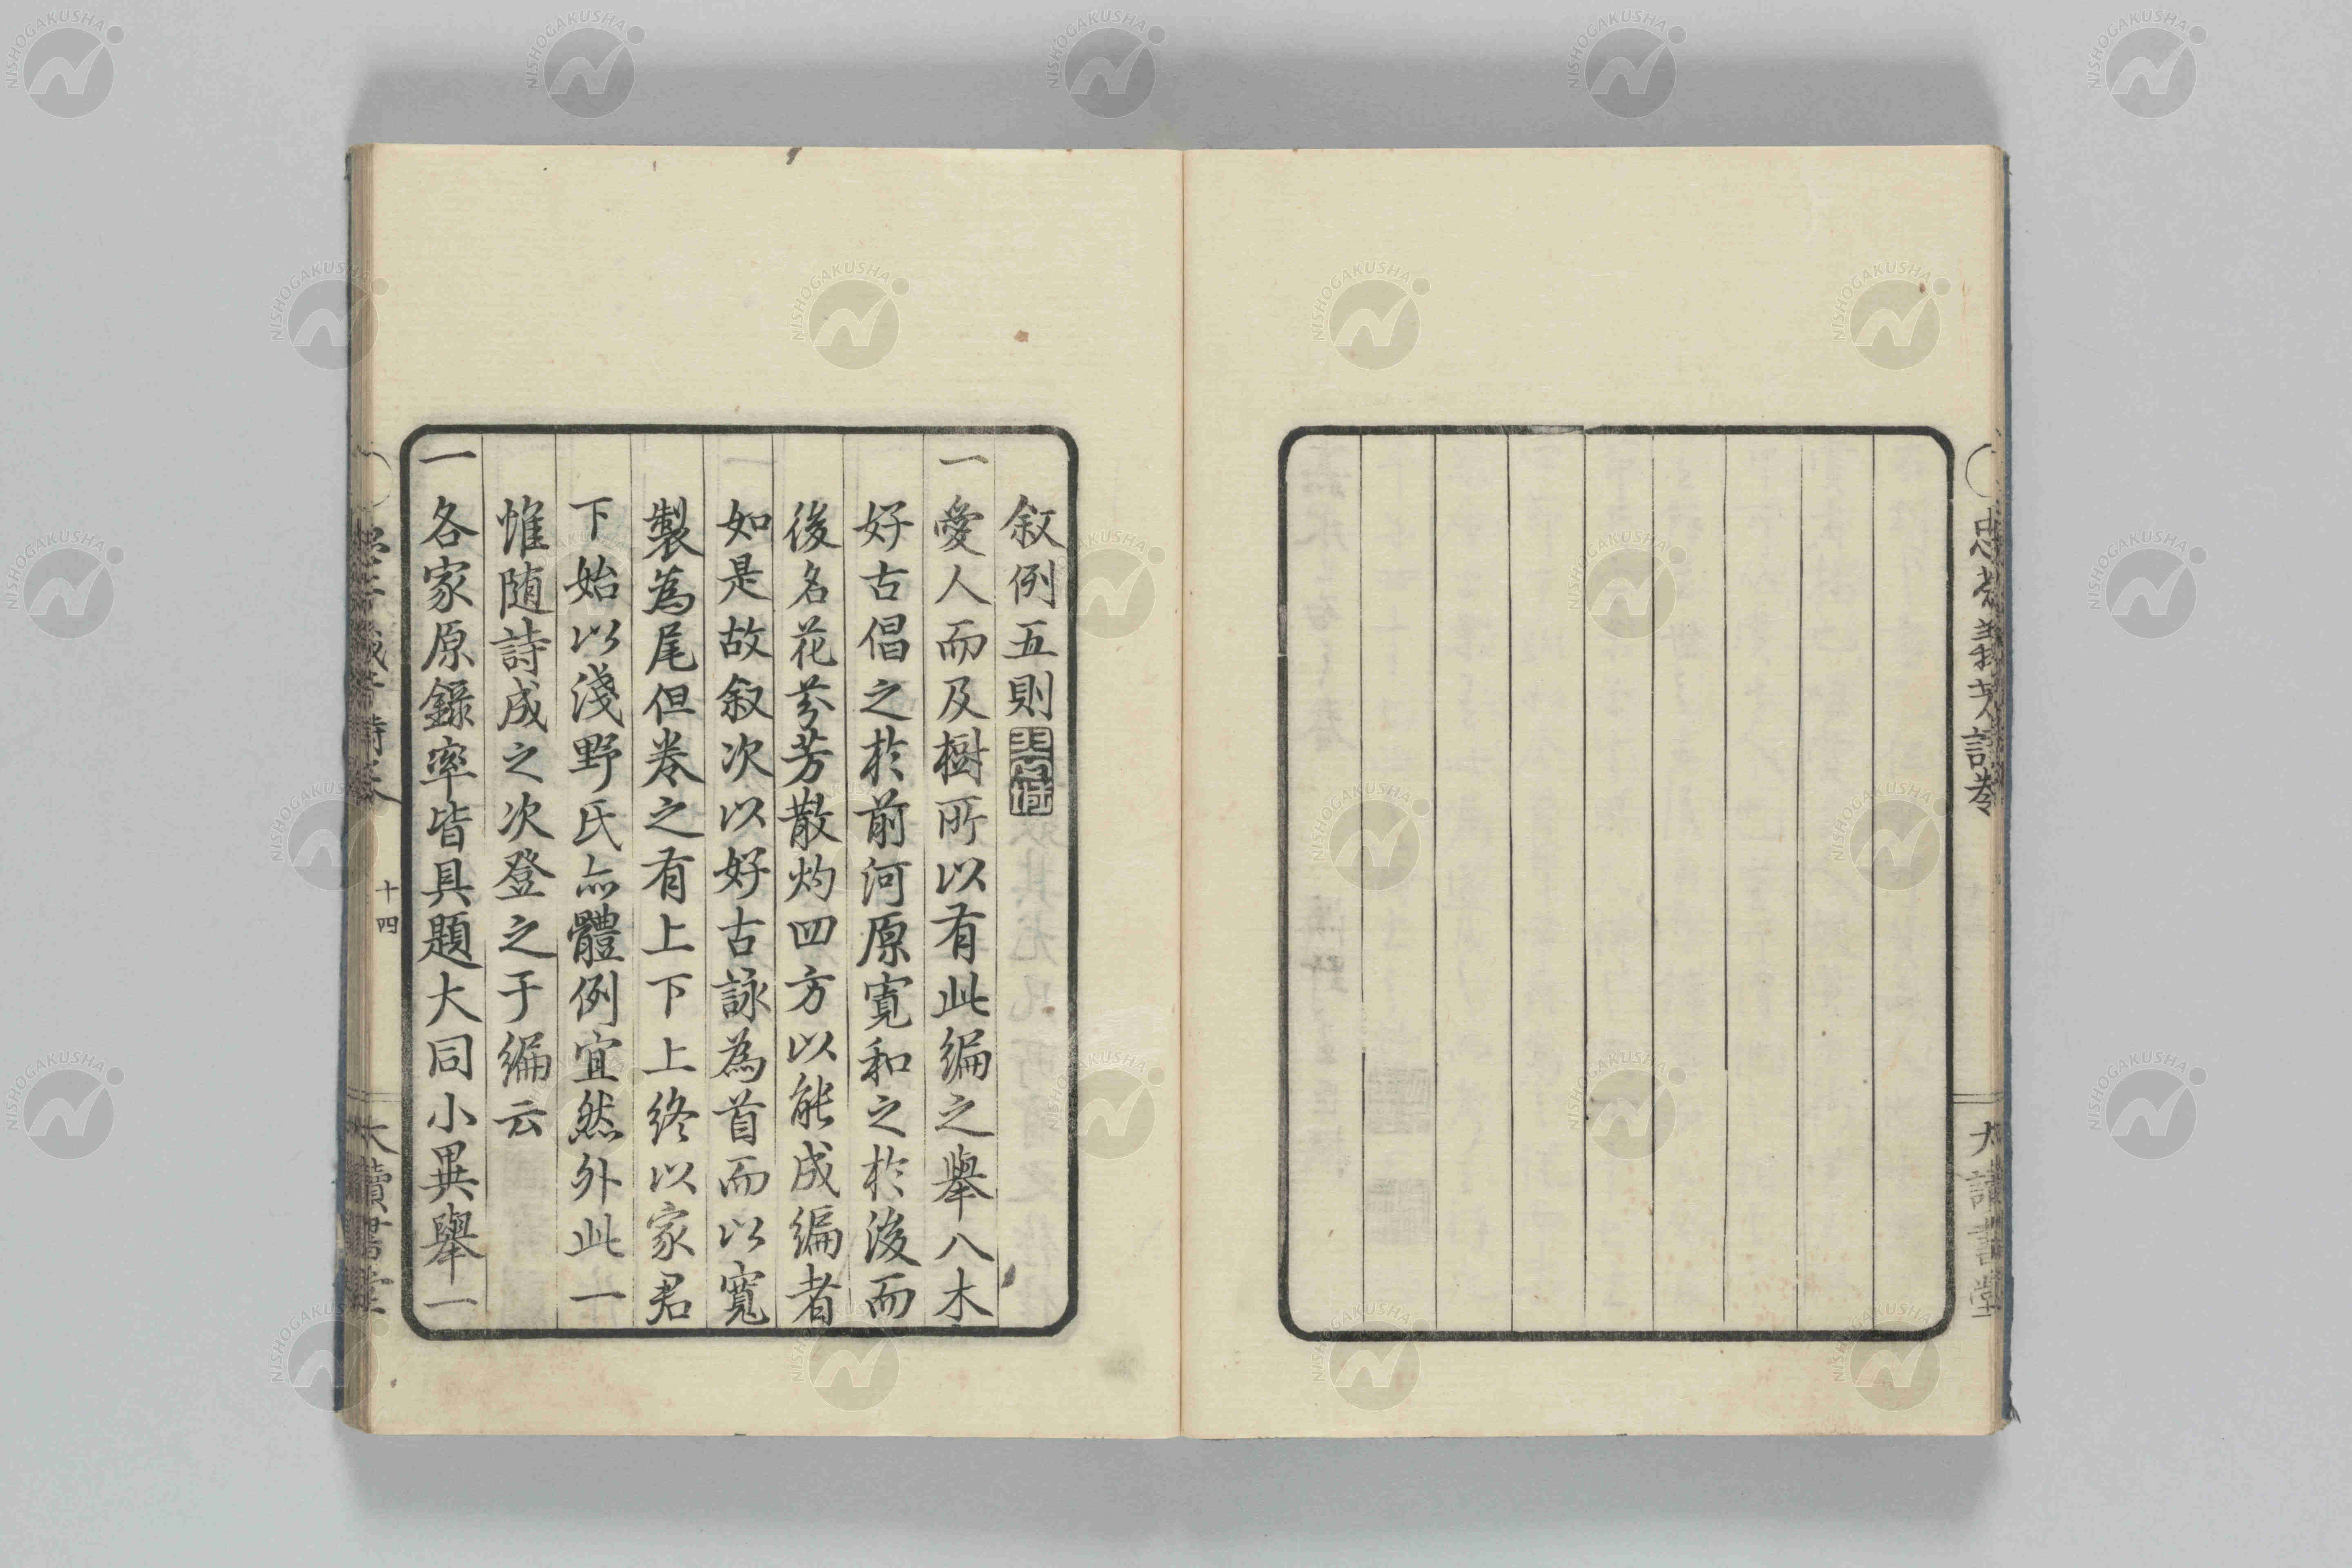 叙例五則
一愛人而及樹所以有此編之擧八木
好古倡之於前河原寛和之於後而
後名花芬芳散灼四方以能成編者
如是故叙次以好古詠為首而以寛
製為尾但巻之有上下上終以家君
下始以淺野氏亦體例宜然外此一
惟随詩成之次登之于編云
一各家原錄率皆具題大同小異擧一
十四
大讀書堂
NISHOGAKUSHA